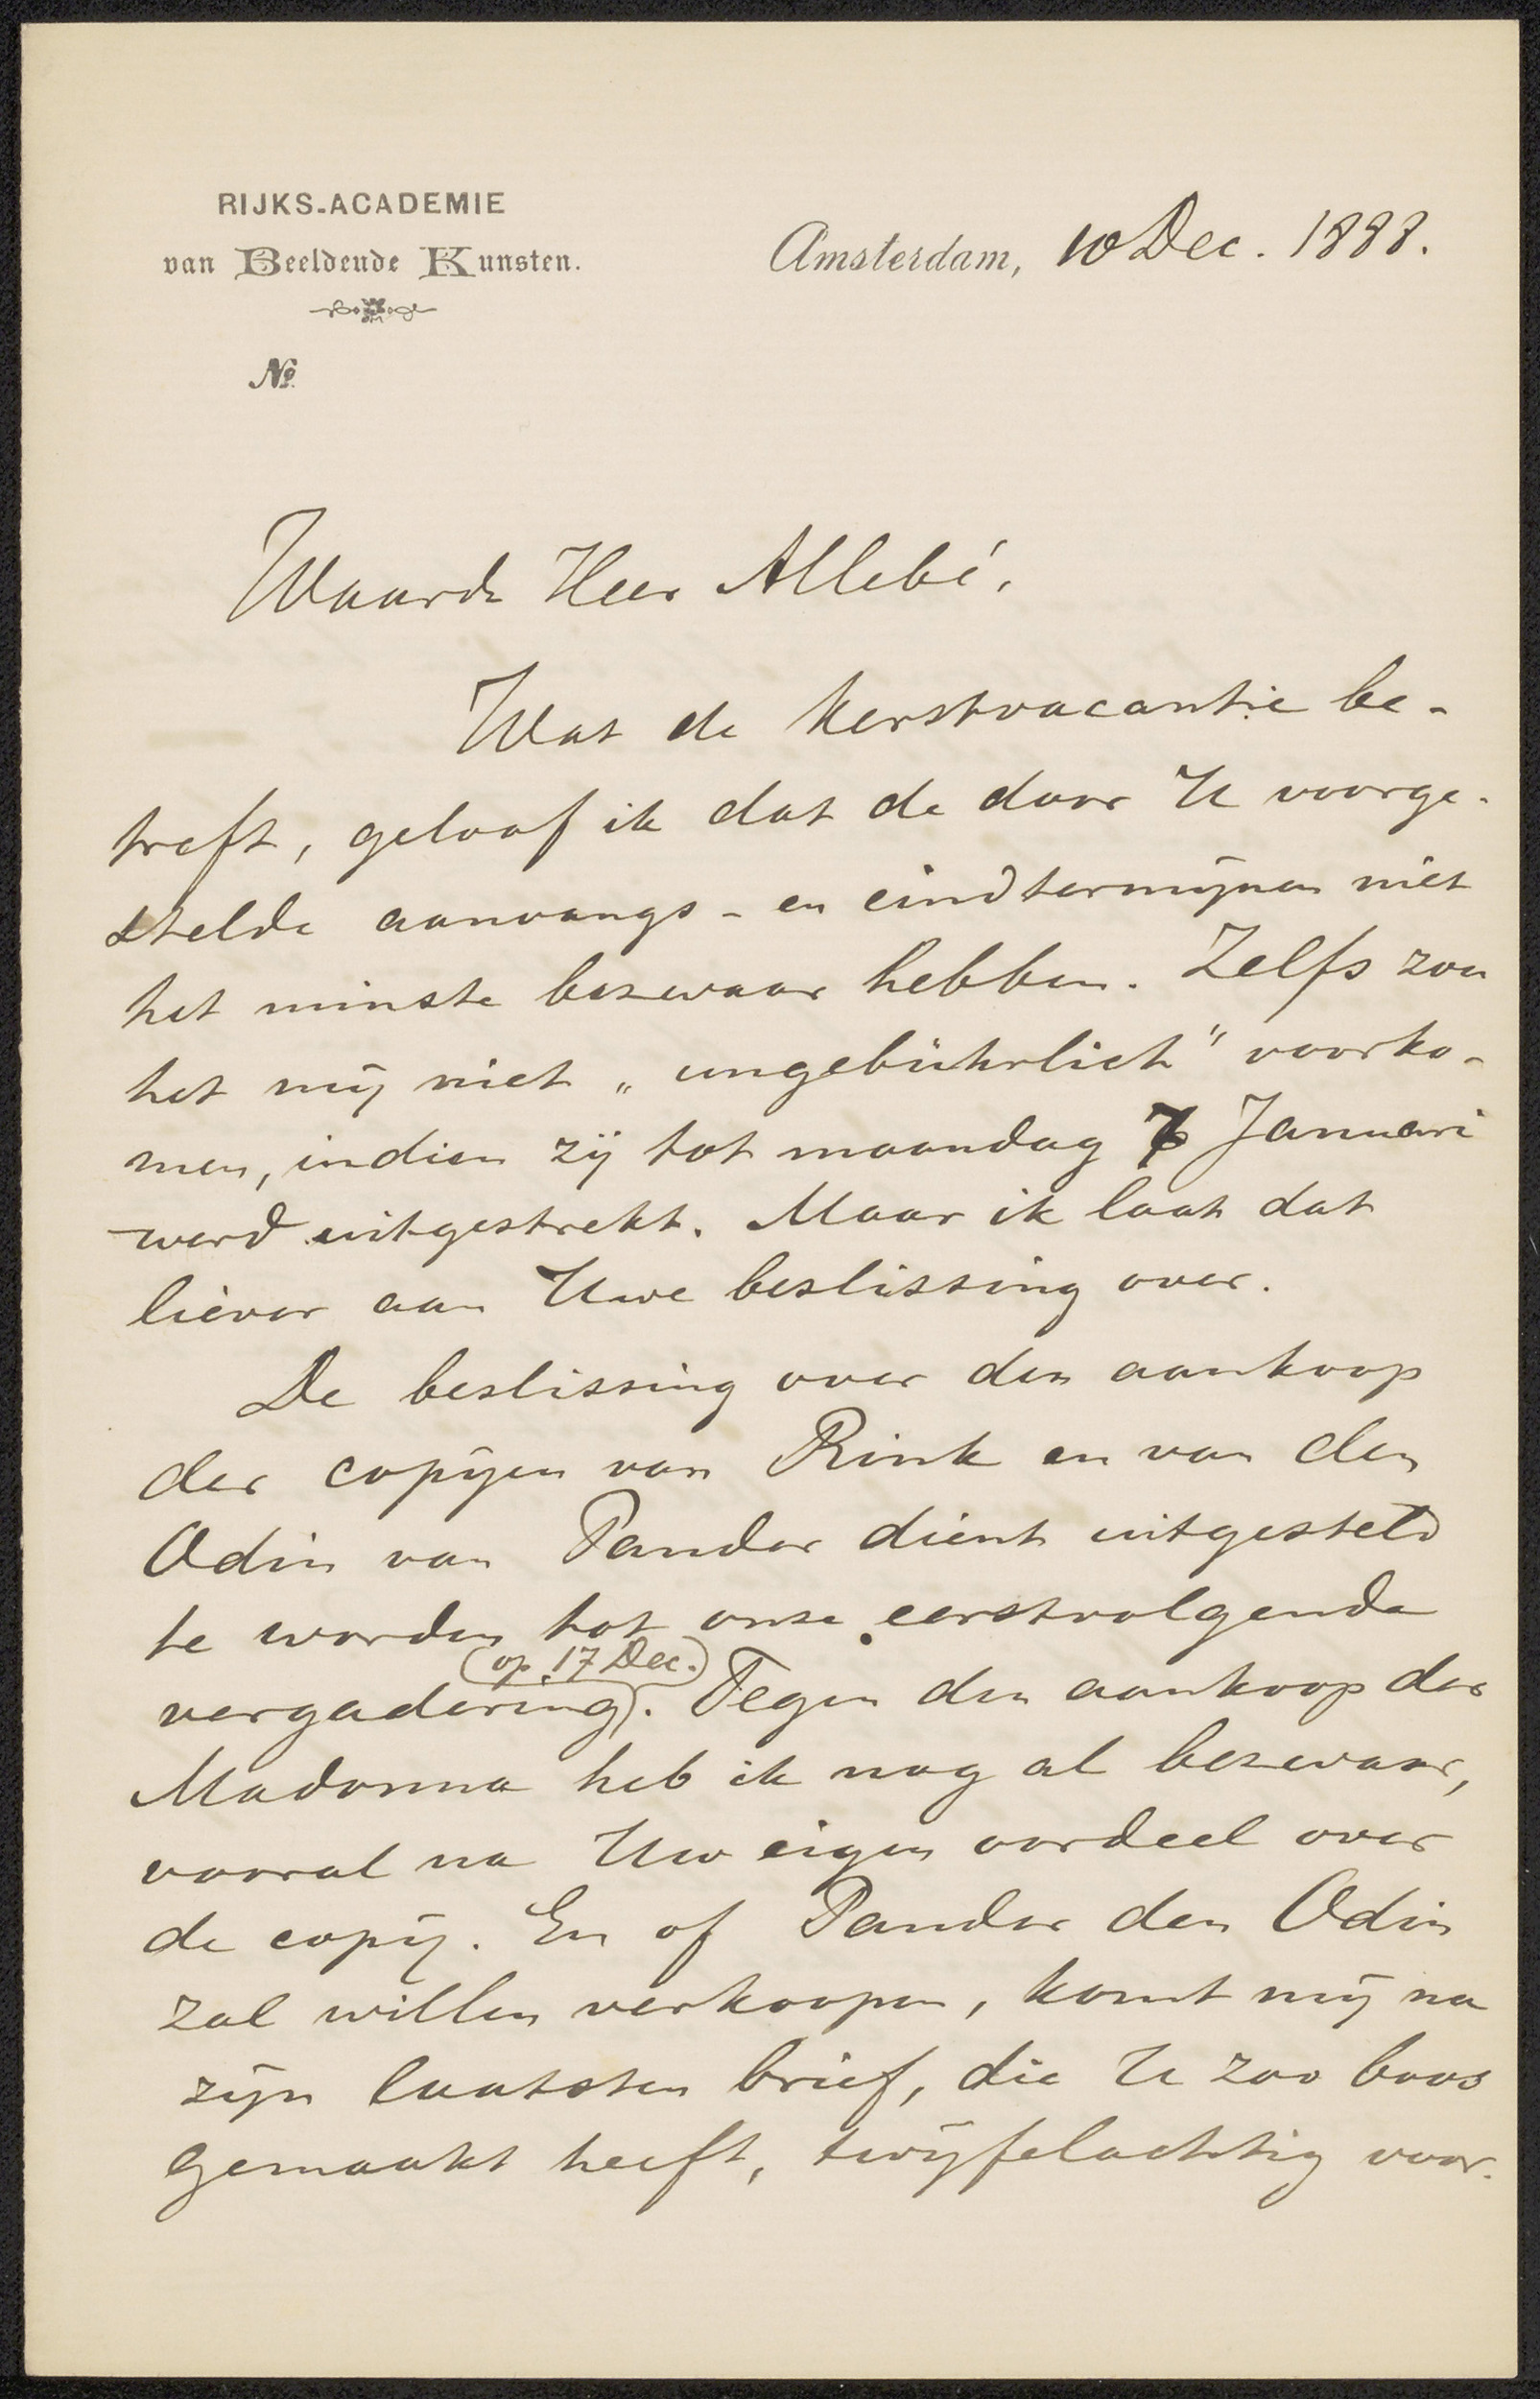 RIJKS-ACADEMIE
van Beeldende Kunsten.
Amsterdam, 10 Dec. 1888.
No.
Waarde Heer Allebé,
Wat de Kerstvacantie be-
treft, geloof ik dat de door U voorge-
stelde aanvangs- en eindtermijnen niet
het minste bezwaar hebben. Zelfs zou
het mij niet „ungebührlich" voorko-
men, indien zij tot maandag 7 Januari
werd uitgestrekt. Maar ik laat dat
liever aan Uwe beslissing over.
De beslissing over den aankoop
der copijen van Rink en van den
Odin van Pander dient uitgesteld
te worden tot onze eerstvolgende
(op 17 Dec.)
vergadering. Tegen den aankoop der
Madonna heb ik nog al bezwaar,
vooral na Uw eigen oordeel over
de copij. En of Pander den Odin
zal willen verkoopen, komt mij na
zijn laatsten brief, die U zoo boos
gemaakt heeft, twijfelachtig voor.